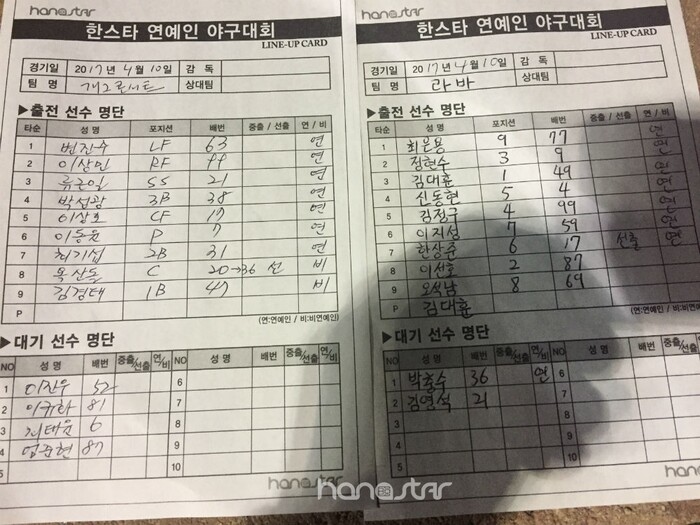 hanostar
한스타 연예인 야구대회
LINE-UP CARD
경기일 2017년 4월 10일 감 독
팀 명 개그콘서트 상대팀
▶출전 선수 명단
타순 성 명 포지션 배번 중출 / 선출 연 / 비
1 변진수 LF 63 연
2 이상민 RF 99 연
3 류근일 SS 21 연
4 박성광 3B 38 연
5 이상호 CF 17 연
6 이동윤 P 7 연
7 최기섭 2B 31 연
8 C 20→36 선 비
9 김경태 1B 47 비
P
(연:연예인 / 비:비연예인)
▶대기 선수 명단
NO 성 명 배번 중출/선출 연/비 NO 성 명 배번 중출/선출 연/비
1 이진우 52 6
2 81 7
3 6 8
4 87 9
5 10
hanostar
hanostar
한스타 연예인 야구대회
LINE-UP CARD
경기일 2017년 4월 10일 감 독
팀 명 라바 상대팀
▶출전 선수 명단
타순 성 명 포지션 배번 중출 / 선출 연 / 비
1 최은용 9 77 연
2 정현수 3 9 연
3 김대훈 1 49 연
4 신동현 5 4 연
5 김정구 4 99 연
6 이지성 7 59 연
7 한상준 6 17 선출 연
8 이선호 2 87
9 오석남 8 69
P 김대훈
(연:연예인 / 비:비연예인)
▶대기 선수 명단
NO 성 명 배번 중출/선출 연/비 NO 성 명 배번 중출/선출 연/비
1 박충수 36 연 6
2 김연석 21 7
3 8
4 9
5 10
hanostar
hanostar